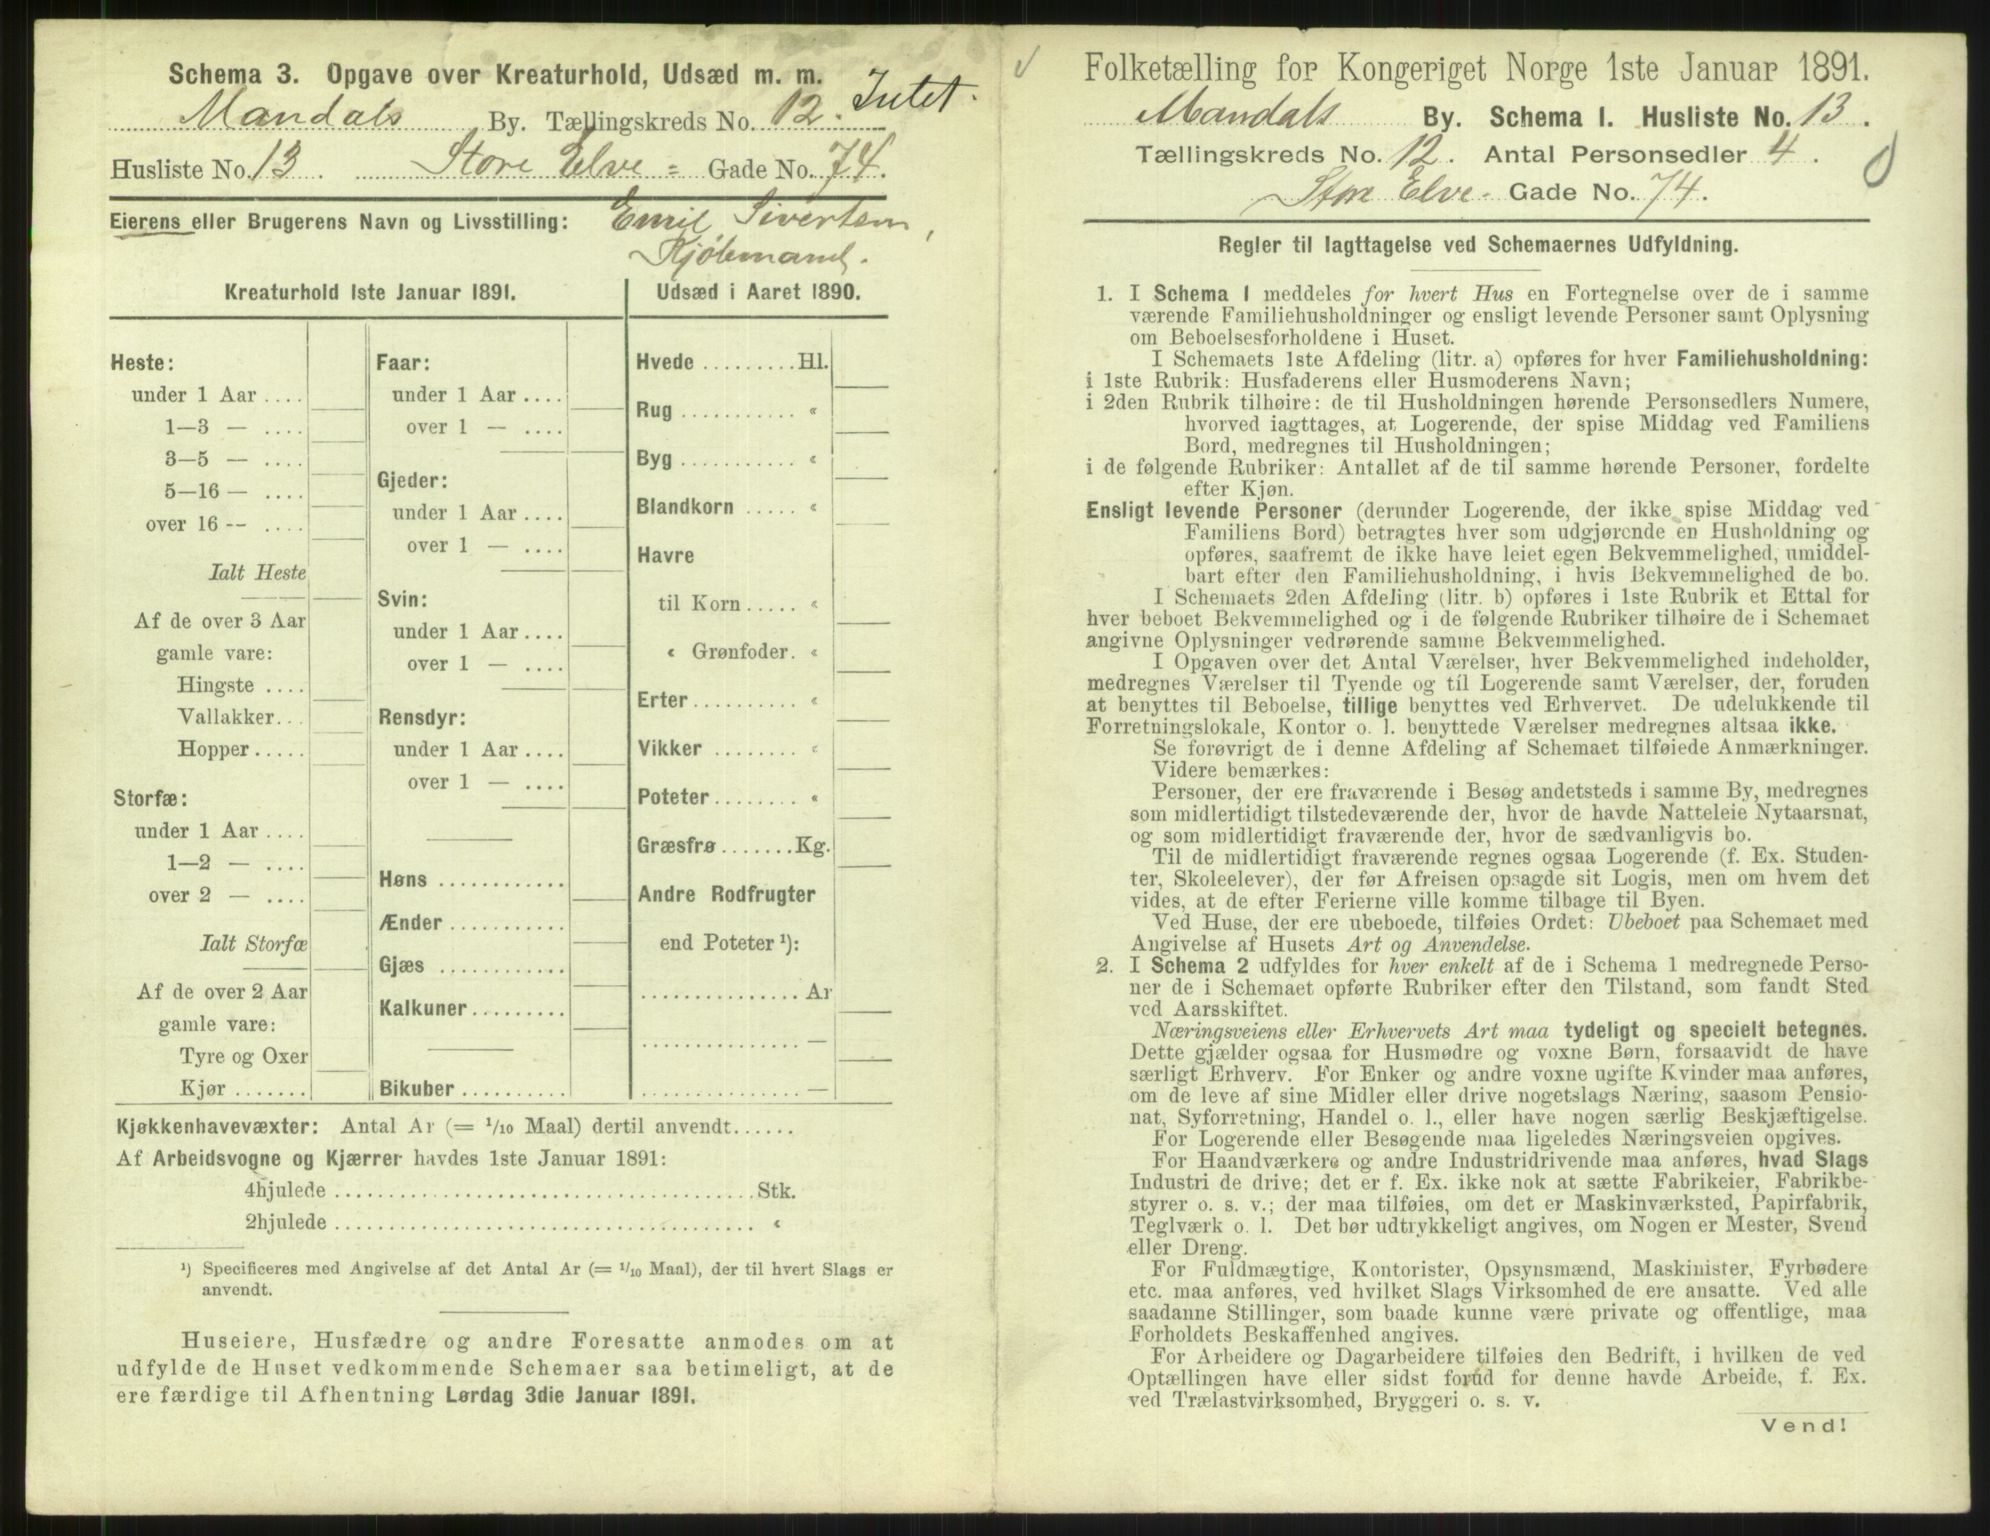 Schema 3. Opgave over Kreaturhold, Udsæd m. m.
Intet.
Mandals By. Tællingskreds No. 12.
Husliste No. 13. Store Elve = Gade No. 74.
Eierens eller Brugerens Navn og Livsstilling: Emil Sivertsen,
Kjøbmand.
Kreaturhold 1ste Januar 1891.
Heste:
under 1 Aar ....
1—3 — ....
3—5 — ....
5—16 — ....
over 16 -- ....
Ialt Heste
Af de over 3 Aar
gamle vare:
Hingste ....
Vallakker...
Hopper .....
Storfæ:
under 1 Aar ....
1—2 — ....
over 2 — ....
Ialt Storfæ
Af de over 2 Aar
gamle vare:
Tyre og Oxer
Kjør .......
Faar:
under 1 Aar ....
over 1 — ....
Gjeder:
under 1 Aar ....
over 1 — ....
Svin:
under 1 Aar ....
over 1 — ....
Rensdyr:
under 1 Aar ....
over 1 — ....
Høns ............
Ænder ...........
Gjæs ............
Kalkuner .........
Bikuber ..........
Udsæd i Aaret 1890.
Hvede ......... Hl.
Rug ........... «
Byg ........... «
Blandkorn ..... «
Havre
til Korn ..... «
« Grønfoder. «
Erter .......... «
Vikker ......... «
Poteter ........ «
Græsfrø ....... Kg.
Andre Rodfrugter
end Poteter ¹):
............... Ar
............... —
............... —
Kjøkkenhavevæxter: Antal Ar (= 1/10 Maal) dertil anvendt......
Af Arbeidsvogne og Kjærrer havdes 1ste Januar 1891:
4hjulede ........................................ Stk.
2hjulede ........................................ «
¹) Specificeres med Angivelse af det Antal Ar (= 1/10 Maal), der til hvert Slags er
anvendt.
Huseiere, Husfædre og andre Foresatte anmodes om at
udfylde de Huset vedkommende Schemaer saa betimeligt, at de
ere færdige til Afhentning Lørdag 3die Januar 1891.
Folketælling for Kongeriget Norge 1ste Januar 1891.
Mandals By. Schema 1. Husliste No. 13.
Tællingskreds No. 12. Antal Personsedler 4.
Store Elve- Gade No. 74.
Regler til Iagttagelse ved Schemaernes Udfyldning.
1. I Schema 1 meddeles for hvert Hus en Fortegnelse over de i samme
værende Familiehusholdninger og ensligt levende Personer samt Oplysning
om Beboelsesforholdene i Huset.
I Schemaets 1ste Afdeling (litr. a) opføres for hver Familiehusholdning:
i 1ste Rubrik: Husfaderens eller Husmoderens Navn;
i 2den Rubrik tilhøire: de til Husholdningen hørende Personsedlers Numere,
hvorved iagttages, at Logerende, der spise Middag ved Familiens
Bord, medregnes til Husholdningen;
i de følgende Rubriker: Antallet af de til samme hørende Personer, fordelte
efter Kjøn.
Ensligt levende Personer (derunder Logerende, der ikke spise Middag ved
Familiens Bord) betragtes hver som udgjørende en Husholdning og
opføres, saafremt de ikke have leiet egen Bekvemmelighed, umiddel-
bart efter den Familiehusholdning, i hvis Bekvemmelighed de bo.
I Schemaets 2den Afdeling (litr. b) opføres i 1ste Rubrik et Ettal for
hver beboet Bekvemmelighed og i de følgende Rubriker tilhøire de i Schemaet
angivne Oplysninger vedrørende samme Bekvemmelighed.
I Opgaven over det Antal Værelser, hver Bekvemmelighed indeholder,
medregnes Værelser til Tyende og til Logerende samt Værelser, der, foruden
at benyttes til Beboelse, tillige benyttes ved Erhvervet. De udelukkende til
Forretningslokale, Kontor o. l. benyttede Værelser medregnes altsaa ikke.
Se forøvrigt de i denne Afdeling af Schemaet tilføiede Anmærkninger.
Videre bemærkes:
Personer, der ere fraværende i Besøg andetsteds i samme By, medregnes
som midlertidigt tilstedeværende der, hvor de havde Natteleie Nytaarsnat,
og som midlertidigt fraværende der, hvor de sædvanligvis bo.
Til de midlertidigt fraværende regnes ogsaa Logerende (f. Ex. Studen-
ter, Skoleelever), der før Afreisen opsagde sit Logis, men om hvem det
vides, at de efter Ferierne ville komme tilbage til Byen.
Ved Huse, der ere ubeboede, tilføies Ordet: Ubeboet paa Schemaet med
Angivelse af Husets Art og Anvendelse.
2. I Schema 2 udfyldes for hver enkelt af de i Schema 1 medregnede Perso-
ner de i Schemaet opførte Rubriker efter den Tilstand, som fandt Sted
ved Aarsskiftet.
Næringsveiens eller Erhvervets Art maa tydeligt og specielt betegnes.
Dette gjælder ogsaa for Husmødre og voxne Børn, forsaavidt de have
særligt Erhverv. For Enker og andre voxne ugifte Kvinder maa anføres,
om de leve af sine Midler eller drive nogetslags Næring, saasom Pensio-
nat, Syforretning, Handel o. l., eller have nogen særlig Beskjæftigelse.
For Logerende eller Besøgende maa ligeledes Næringsveien opgives.
For Haandværkere og andre Industridrivende maa anføres, hvad Slags
Industri de drive; det er f. Ex. ikke nok at sætte Fabrikeier, Fabrikbe-
styrer o. s. v.; der maa tilføies, om det er Maskinværksted, Papirfabrik,
Teglværk o. l. Det bør udtrykkeligt angives, om Nogen er Mester, Svend
eller Dreng.
For Fuldmægtige, Kontorister, Opsynsmænd, Maskinister, Fyrbødere
etc. maa anføres, ved hvilket Slags Virksomhed de ere ansatte. Ved alle
saadanne Stillinger, som baade kunne være private og offentlige, maa
Forholdets Beskaffenhed angives.
For Arbeidere og Dagarbeidere tilføies den Bedrift, i hvilken de ved
Optællingen have eller sidst forud for denne havde Arbeide, f. Ex.
ved Trælastvirksomhed, Bryggeri o. s. v.
Vend!